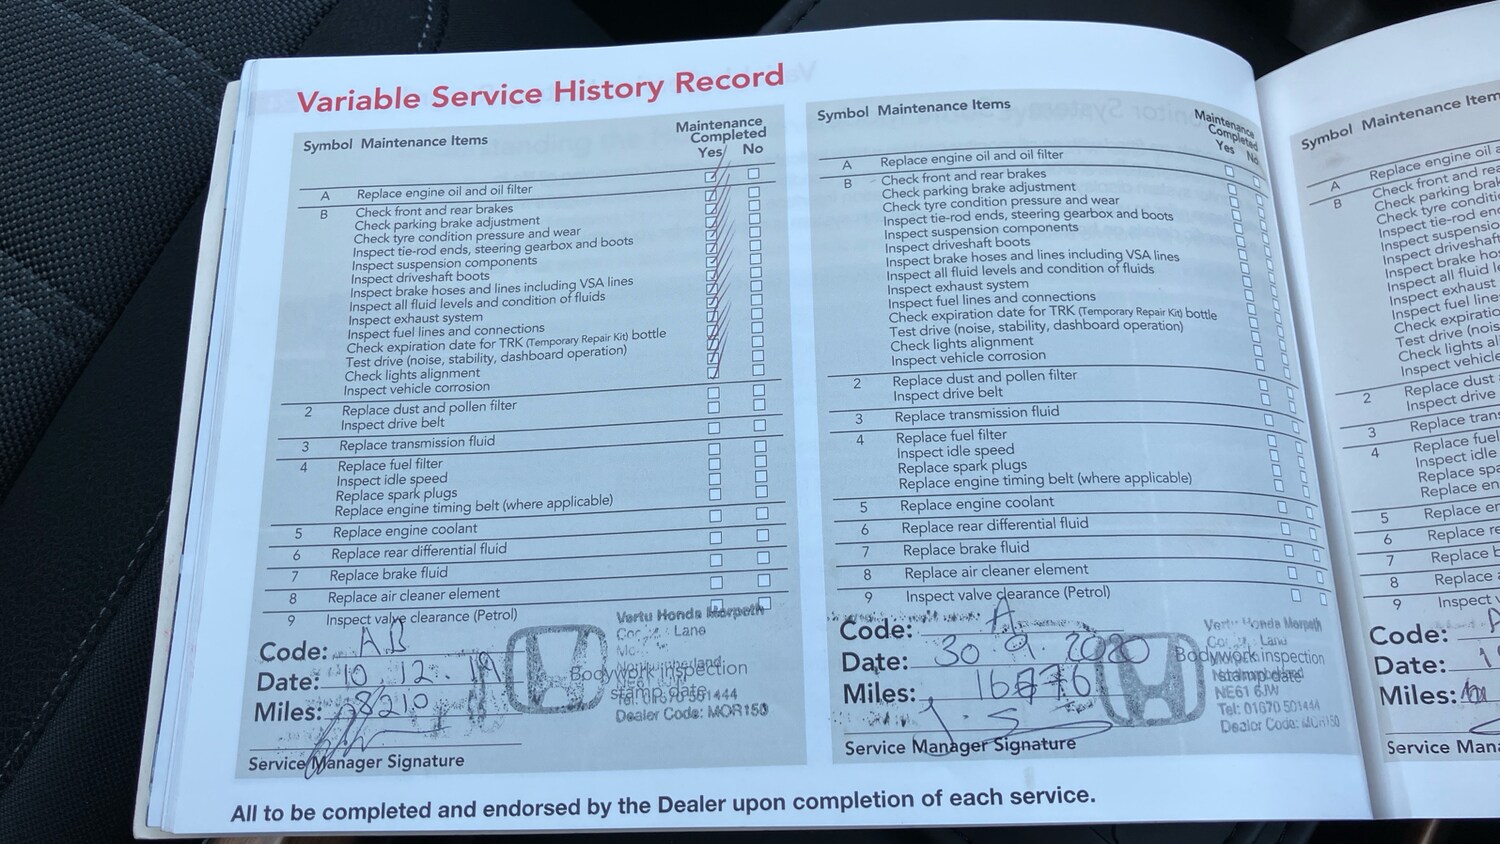 Variable Service History Record
Symbol Maintenance Items
Maintenance
Completed
Yes No
A Replace engine oil and oil filter
B Check front and rear brakes
Check parking brake adjustment
Check tyre condition pressure and wear
Inspect tie-rod ends, steering gearbox and boots
Inspect suspension components
Inspect driveshaft boots
Inspect brake hoses and lines including VSA lines
Inspect all fluid levels and condition of fluids
Inspect exhaust system
Inspect fuel lines and connections
Check expiration date for TRK (Temporary Repair Kit) bottle
Test drive (noise, stability, dashboard operation)
Check lights alignment
Inspect vehicle corrosion
2 Replace dust and pollen filter
Inspect drive belt
3 Replace transmission fluid
4 Replace fuel filter
Inspect idle speed
Replace spark plugs
Replace engine timing belt (where applicable)
5 Replace engine coolant
6 Replace rear differential fluid
7 Replace brake fluid
8 Replace air cleaner element
9 Inspect valve clearance (Petrol)
Code: AB
Date: 10.12.19
Miles: 8210
Service Manager Signature
Vertu Honda Morpeth
Lane
Northumberland
Bodywork inspection
stamp date
Tel: 01670 501444
Dealer Code: MOR150
Symbol Maintenance Items
Maintenance
Completed
Yes No
A Replace engine oil and oil filter
B Check front and rear brakes
Check parking brake adjustment
Check tyre condition pressure and wear
Inspect tie-rod ends, steering gearbox and boots
Inspect suspension components
Inspect driveshaft boots
Inspect brake hoses and lines including VSA lines
Inspect all fluid levels and condition of fluids
Inspect exhaust system
Inspect fuel lines and connections
Check expiration date for TRK (Temporary Repair Kit) bottle
Test drive (noise, stability, dashboard operation)
Check lights alignment
Inspect vehicle corrosion
2 Replace dust and pollen filter
Inspect drive belt
3 Replace transmission fluid
4 Replace fuel filter
Inspect idle speed
Replace spark plugs
Replace engine timing belt (where applicable)
5 Replace engine coolant
6 Replace rear differential fluid
7 Replace brake fluid
8 Replace air cleaner element
9 Inspect valve clearance (Petrol)
Code: A
Date: 30.9.2020
Miles:
Service Manager Signature
Vertu Honda Morpeth
Bodywork inspection
stamp date
NE61 6JW
Tel: 01670 501444
Dealer Code: MOR150
All to be completed and endorsed by the Dealer upon completion of each service.
Symbol Maintenance Item
A Replace engine oil
B Check front and re
Check parking brak
Check tyre conditi
Inspect tie-rod end
Inspect suspensio
Inspect driveshaft
Inspect brake hos
Inspect all fluid l
Inspect exhaust
Inspect fuel line
Check expiratio
Test drive (nois
Check lights al
Inspect vehicle
2 Replace dust
Inspect drive
3 Replace tran
4 Replace fuel
Inspect idle
Replace spa
Replace en
5 Replace er
6 Replace re
7 Replace b
8 Replace
9 Inspect v
Code:
Date:
Miles:
Service Man